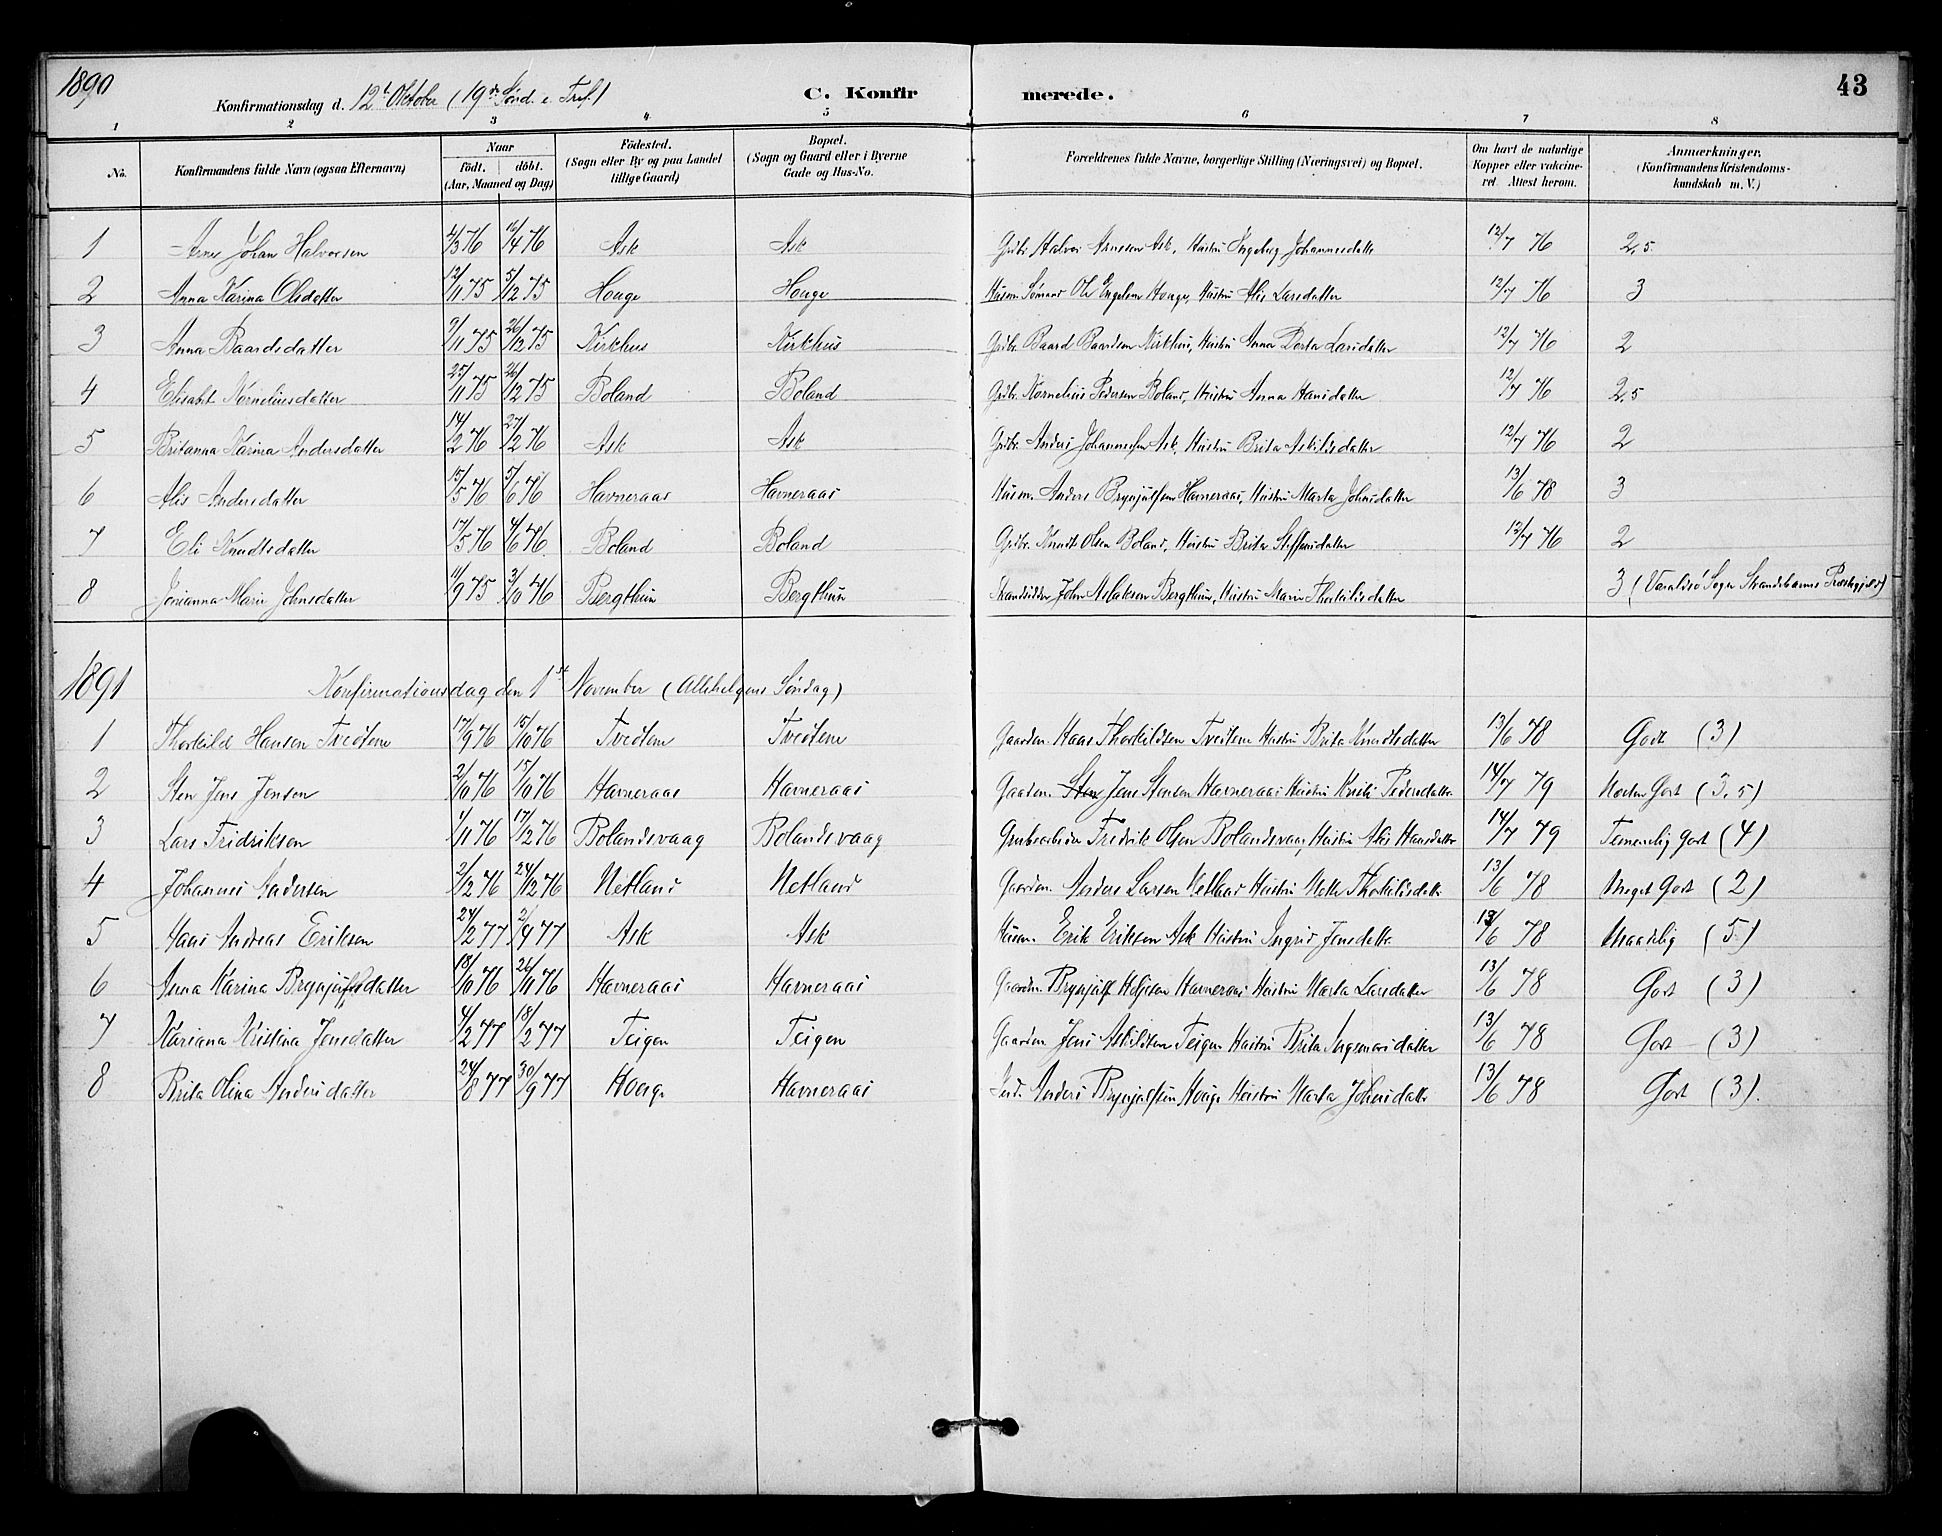 1890
Konfirmationsdag d. 12t Oktober (19de Sönd. e. Tref.)
C. Konfirmerede.
43
1 2 3 4 5 6 7 8
No. Konfirmandens fulde Navn (ogsaa Efternavn) Naar födt. döbt. (Aar, Maaned og Dag) Födested. (Sogn eller By og paa Landet tillige Gaard) Bopæl. (Sogn og Gaard eller i Byerne Gade og Hus-No. Forældrenes fulde Navne, borgerlige Stilling (Næringsvei) og Bopæl. Om havt de naturlige Kopper eller vakcineret. Attest herom. Anmærkninger. (Konfirmandens Kristendomskundskab m. V.)
1 Arne Johan Halvorsen 4/3 76 16/4 76 Ask Ask Grdbr. Halvor Arnesen Ask, Hustru Ingeborg Johannesdatter 12/7 76 2,5
2 Anna Karina Olsdatter 12/11 75 5/12 75 Houge Houge Husm. Sömand Ole Engelsen Houge, Hustru Alis Larsdatter 12/7 76 3
3 Anna Baardsdatter 9/11 75 26/12 75 Kirkhus Kirkhus Grdbr. Baard Baardsen Kirkhus, Hustru Anna Dorta Larsdatter 12/7 76 2
4 Elisabet Korneliusdatter 25/11 75 26/12 75 Boland Boland Grdbr. Kornelius Pedersen Boland, Hustru Anna Hansdatter 12/7 76 2,5
5 Britanna Karina Andersdatter 14/2 76 27/2 76 Ask Ask Grdbr. Anders Johannessen Ask, Hustru Brita Askildsdatter 12/7 76 2
6 Alis Andersdatter 15/5 76 5/6 76 Havneraas Havneraas Husm. Anders Brynjulfsen Havneraas, Hustru Marta Johnsdatter 13/6 78 3
7 Eli Knudtsdatter 17/5 76 4/6 76 Boland Boland Grdbr. Knudt Olsen Boland, Hustru Brita Steffensdatter 12/7 76 2
8 Josianna Marie Johnsdatter 11/9 75 3/10 76 Bergthun Bergthun Strandsidder John Aslaksen Bergthun, Hustru Marie Thorkildsdatter 3 (Varaldsö Sogn Strandebarms Præstegjeld)
1891 Konfirmationsdag den 1st November (Allehelgens Söndag)
1 Thorkild Hansen Tvedtene 17/9 76 15/10 76 Tvedtene Tvedtene Gaardm. Hans Thorkildsen Tvedtene Hustru Brita Knudtsdatter 13/6 78 Godt (3)
2 Sten Jens Jensen 2/10 76 15/10 76 Havneraas Havneraas Gaardm. Sten Jens Stensen Havneraas Hustru Kristi Pedersdatter 14/7 79 Næsten Godt (3,5)
3 Lars Fridriksen 1/11 76 17/12 76 Bolandsvaag Bolandsvaag Grubearbeider Fredrik Olsen Bolandsvaag, Hustru Alis Hansdatter 14/7 79 Temmelig godt (4)
4 Johannes Andersen 2/12 76 24/12 76 Netland Netland Gaardm. Anders Larsen Netland Hustru Mette Thorkildsdatter 13/6 78 Meget Godt (2)
5 Hans Andreas Eriksen 24/2 77 2/4 77 Ask Ask Husm. Erik Eriksen Ask Hustru Ingrid Jensdatter 13/6 78 Maadelig (5)
6 Anna Karina Brynjulfsdatter 18/10 76 26/11 76 Havneraas Havneraas Gaardm. Brynjulf Helgesen Havneraas Hustru Marta Larsdatter 13/6 78 Godt (3)
7 Kariana Kristina Jensdatter 4/2 77 18/2 77 Teigen Teigen Gaardm. Jens Askildsen Teigen Hustru Brita Ingemarsdatter 13/6 78 Godt (3)
8 Brita Olina Andersdatter 24/8 77 30/9 77 Houge Havneraas Anders Brynjulfsen Houge Hustru Marta Johnsdatter 13/6 78 Godt (3).